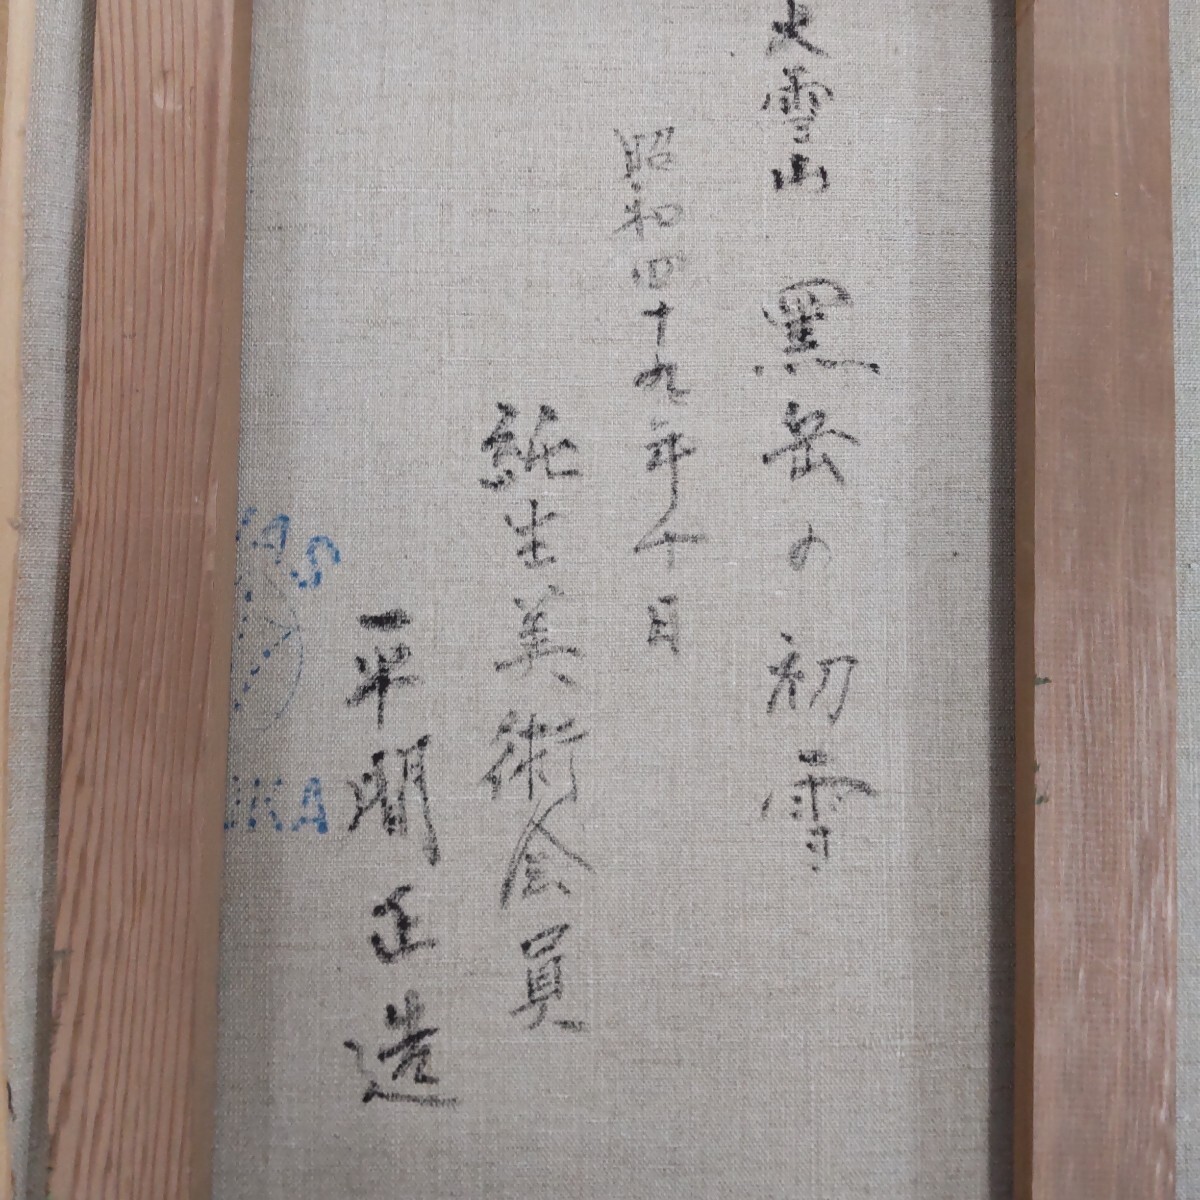 大雪山 黒岳の初雪
昭和四十九年十月
純生美術会員
平間正造
VAS
UKA